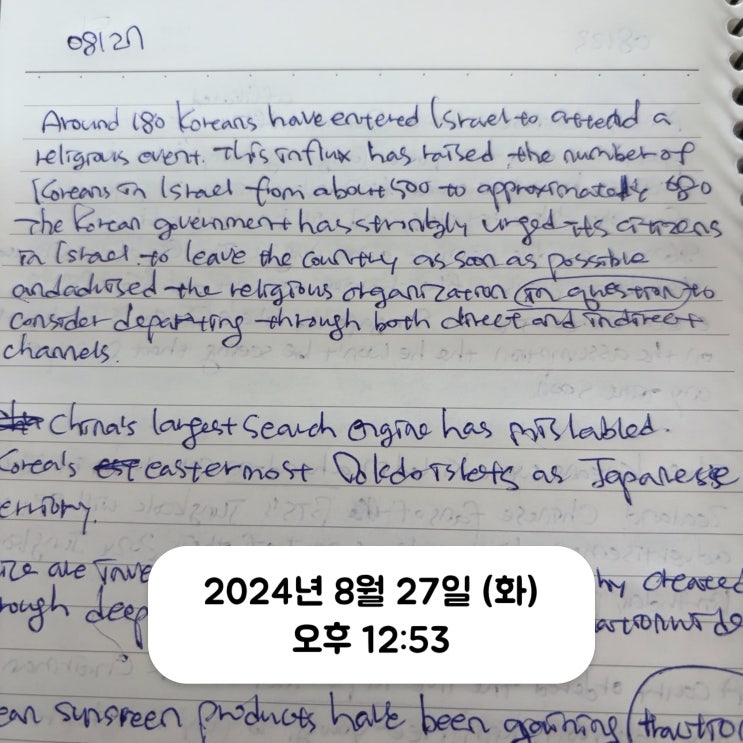 08/27
Around 180 Koreans have entered Israel to attend a
religious event. This influx has raised the number of
Koreans in Israel from about 500 to approximately 680
The Korean government has strongly urged its citizens
in Israel to leave the country as soon as possible
and advised the religious organization in question to
consider departing through both direct and indirect
channels.
China's largest search engine has mislabled.
Korea's easternmost Dokdo islets as Japanese
erritory.
are created
rough deep
2024년 8월 27일 (화)
오후 12:53
ean sunsreen products have been gaining traction